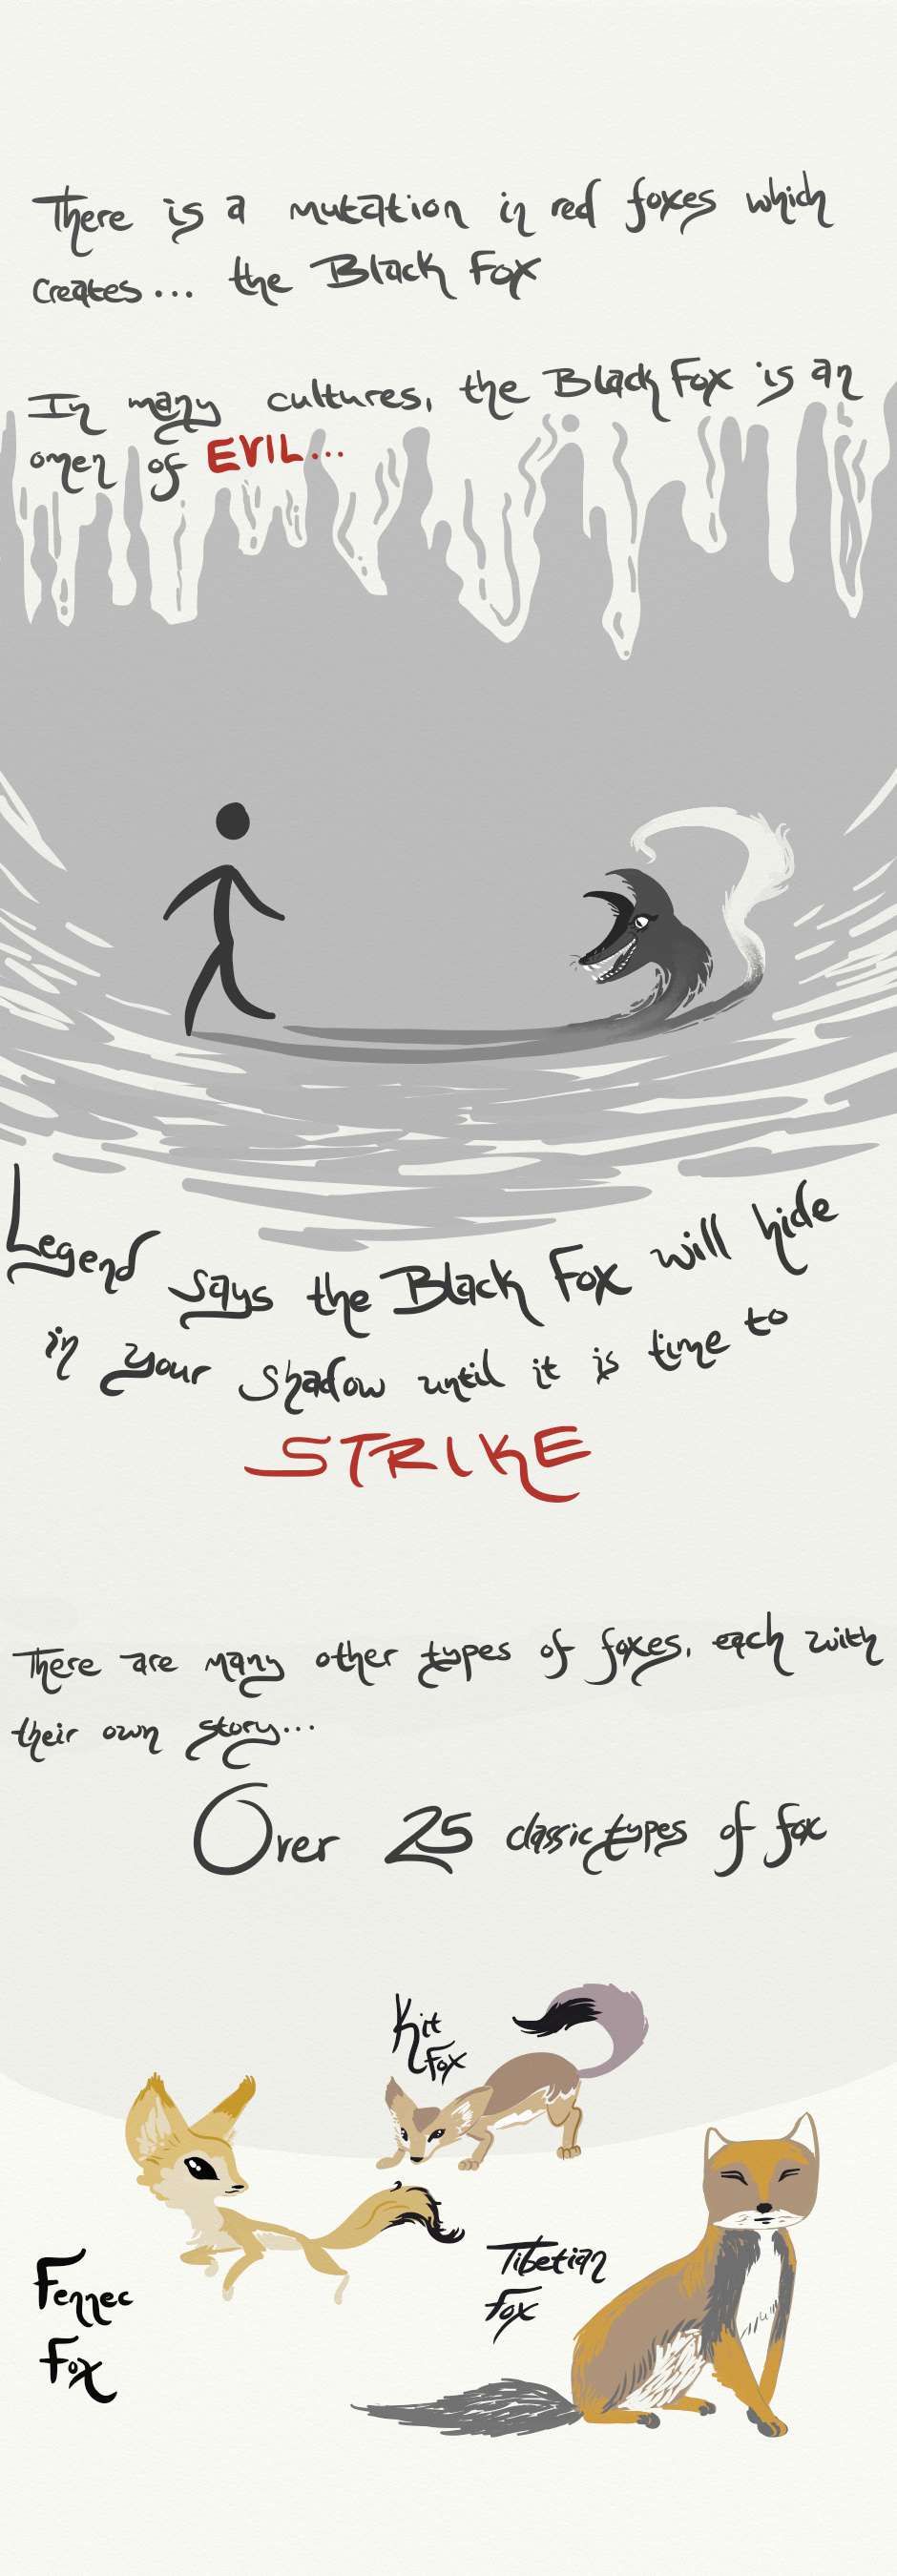 There is a mutation in red foxes which
creates... the Black Fox
In many cultures, the Black Fox is an
omen of EVIL...
Legend says the Black Fox will hide
in your shadow until it is time to
STRIKE
There are many other types of foxes, each with
their own story...
Over 25 classic types of fox
Kit
Fox
Fennec
Fox
Tibetian
Fox